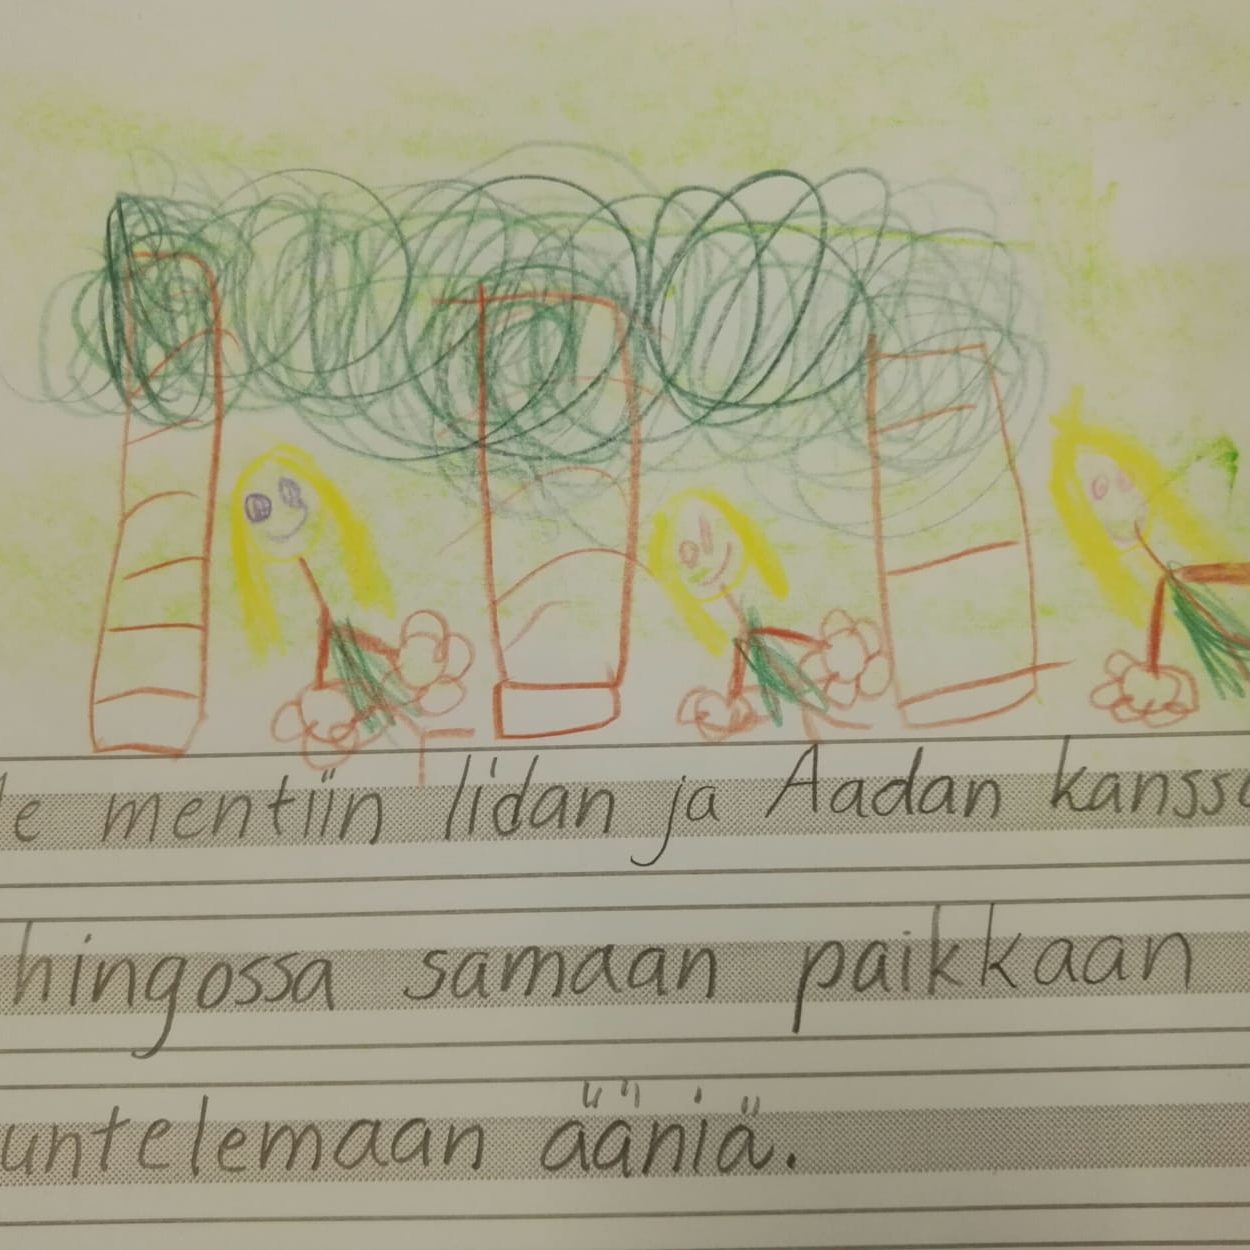 le mentiin Iidan ja Aadan kanssa
hingossa samaan paikkaan
untelemaan ääniä.